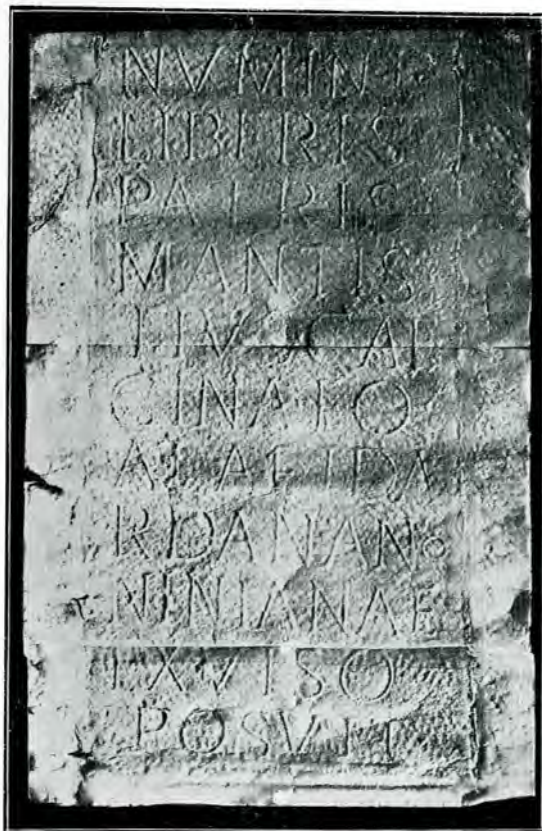 NVMINI
LIBERIS
PATRIS
MANTIS
TIVS CAL
CINATO
ALAE I DA
RDANANO
NINIANAE
EX VISO
POSVIT